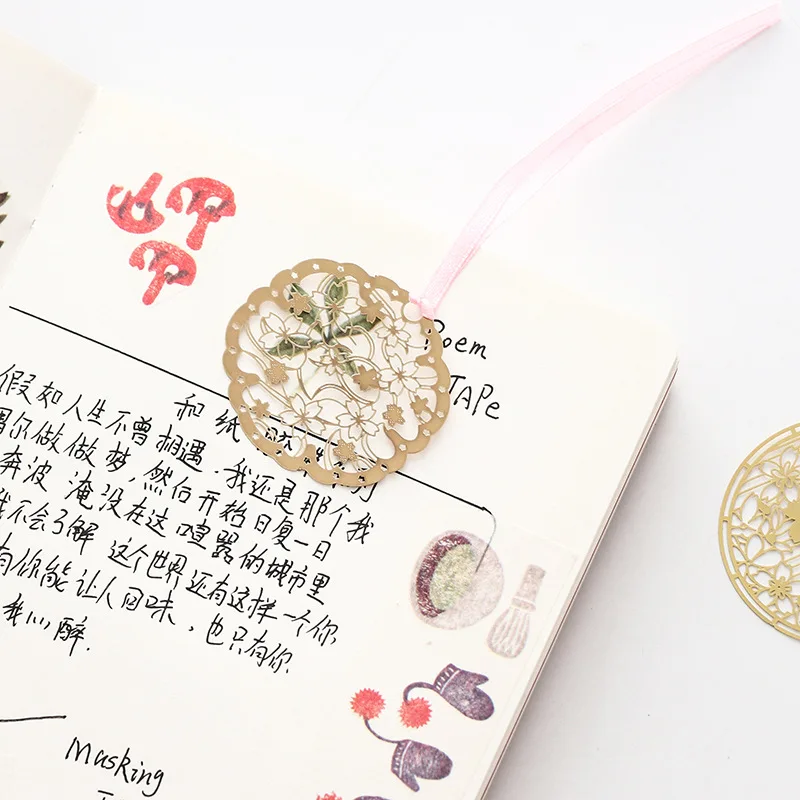 Poem
TAPe
和纸
假如人生不曾相遇,我还是那个我
偶尔做做梦,然后开始日复一日
奔波 淹没在这喧嚣的城市里
我不会了解 这个世界还有这样一个你
有你能让人回味,也只有你
我心醉.
Masking